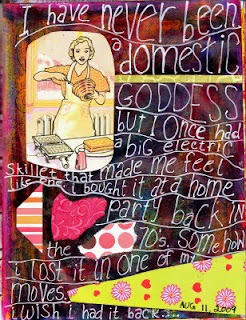 I have never been
a domestic
GODDESS
but Once had
a big electric
Skillet that made me feel
like one. i bought it at a home
party back in
the 70's. Somehow
i lost it in one of my
moves.
i wish i had it back....
AUG 11, 2009